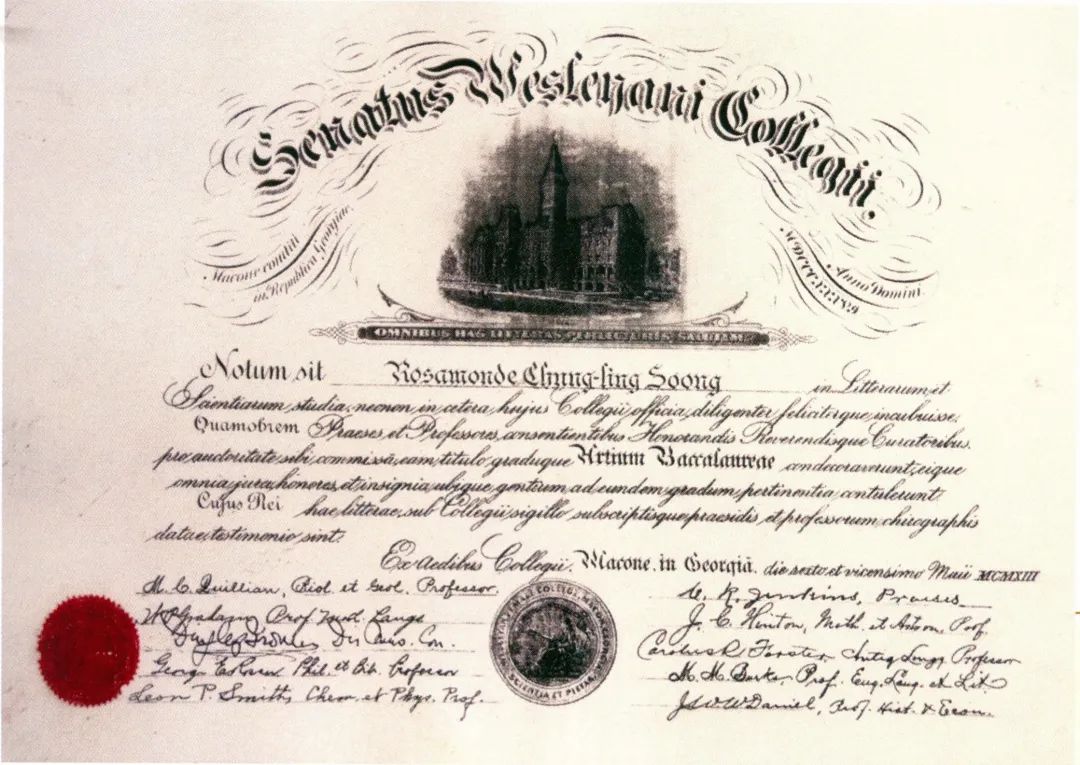 Senatus Wesleyani Collegii,
Macone conditi
in Republica Georgiae,
Anno Domini
MDCCCXXXIX
OMNIBUS HAS LITTERAS LECTURIS SALUTEM
Notum sit Rosamonde Chung-ling Soong in Litterarum et
Scientiarum studia, necnon in cetera hujus Collegii officia, diligenter feliciterque incubuisse,
Quamobrem Praeses et Professores, consentientibus Honorandis Reverendisque Curatoribus,
pro auctoritate sibi commissâ, eam titulo graduque Artium Baccalaureae condecoraverunt, eique
omnia jura, honores, et insignia, ubique gentium ad eundem gradum pertinentia, contulerunt
Cujus Rei hae litterae, sub Collegii sigillo subscriptisque praesidis et professorum chirographis
datae testimonio sint.
Ex aedibus Collegii, Macone, in Georgiâ, die sexto et vicensimo Maii MCMXIII
M. C. Quillian, Biol. et Geol. Professor
Prof. Lange
Dir. Con.
George E. Phil. et Bib. Professor
Leon P. Smith, Chem. et Phys. Prof.
SCIENTIA ET PIETAS
C. R. Jenkins, Praeses
J. C. Hinton, Math. et Astron. Prof.
Forster Antiq. Professor
M. M. Burks, Prof. Eng. Lang. et Lit.
Daniel, Prof. Hist. & Econ.